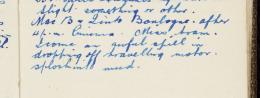 slight something or other.
Mrs B & Zink Boulogne. after
4 p.m. Cinema. Miss tram.
Leome an awful spill in
dropping off travelling motor.
sploshing mud.